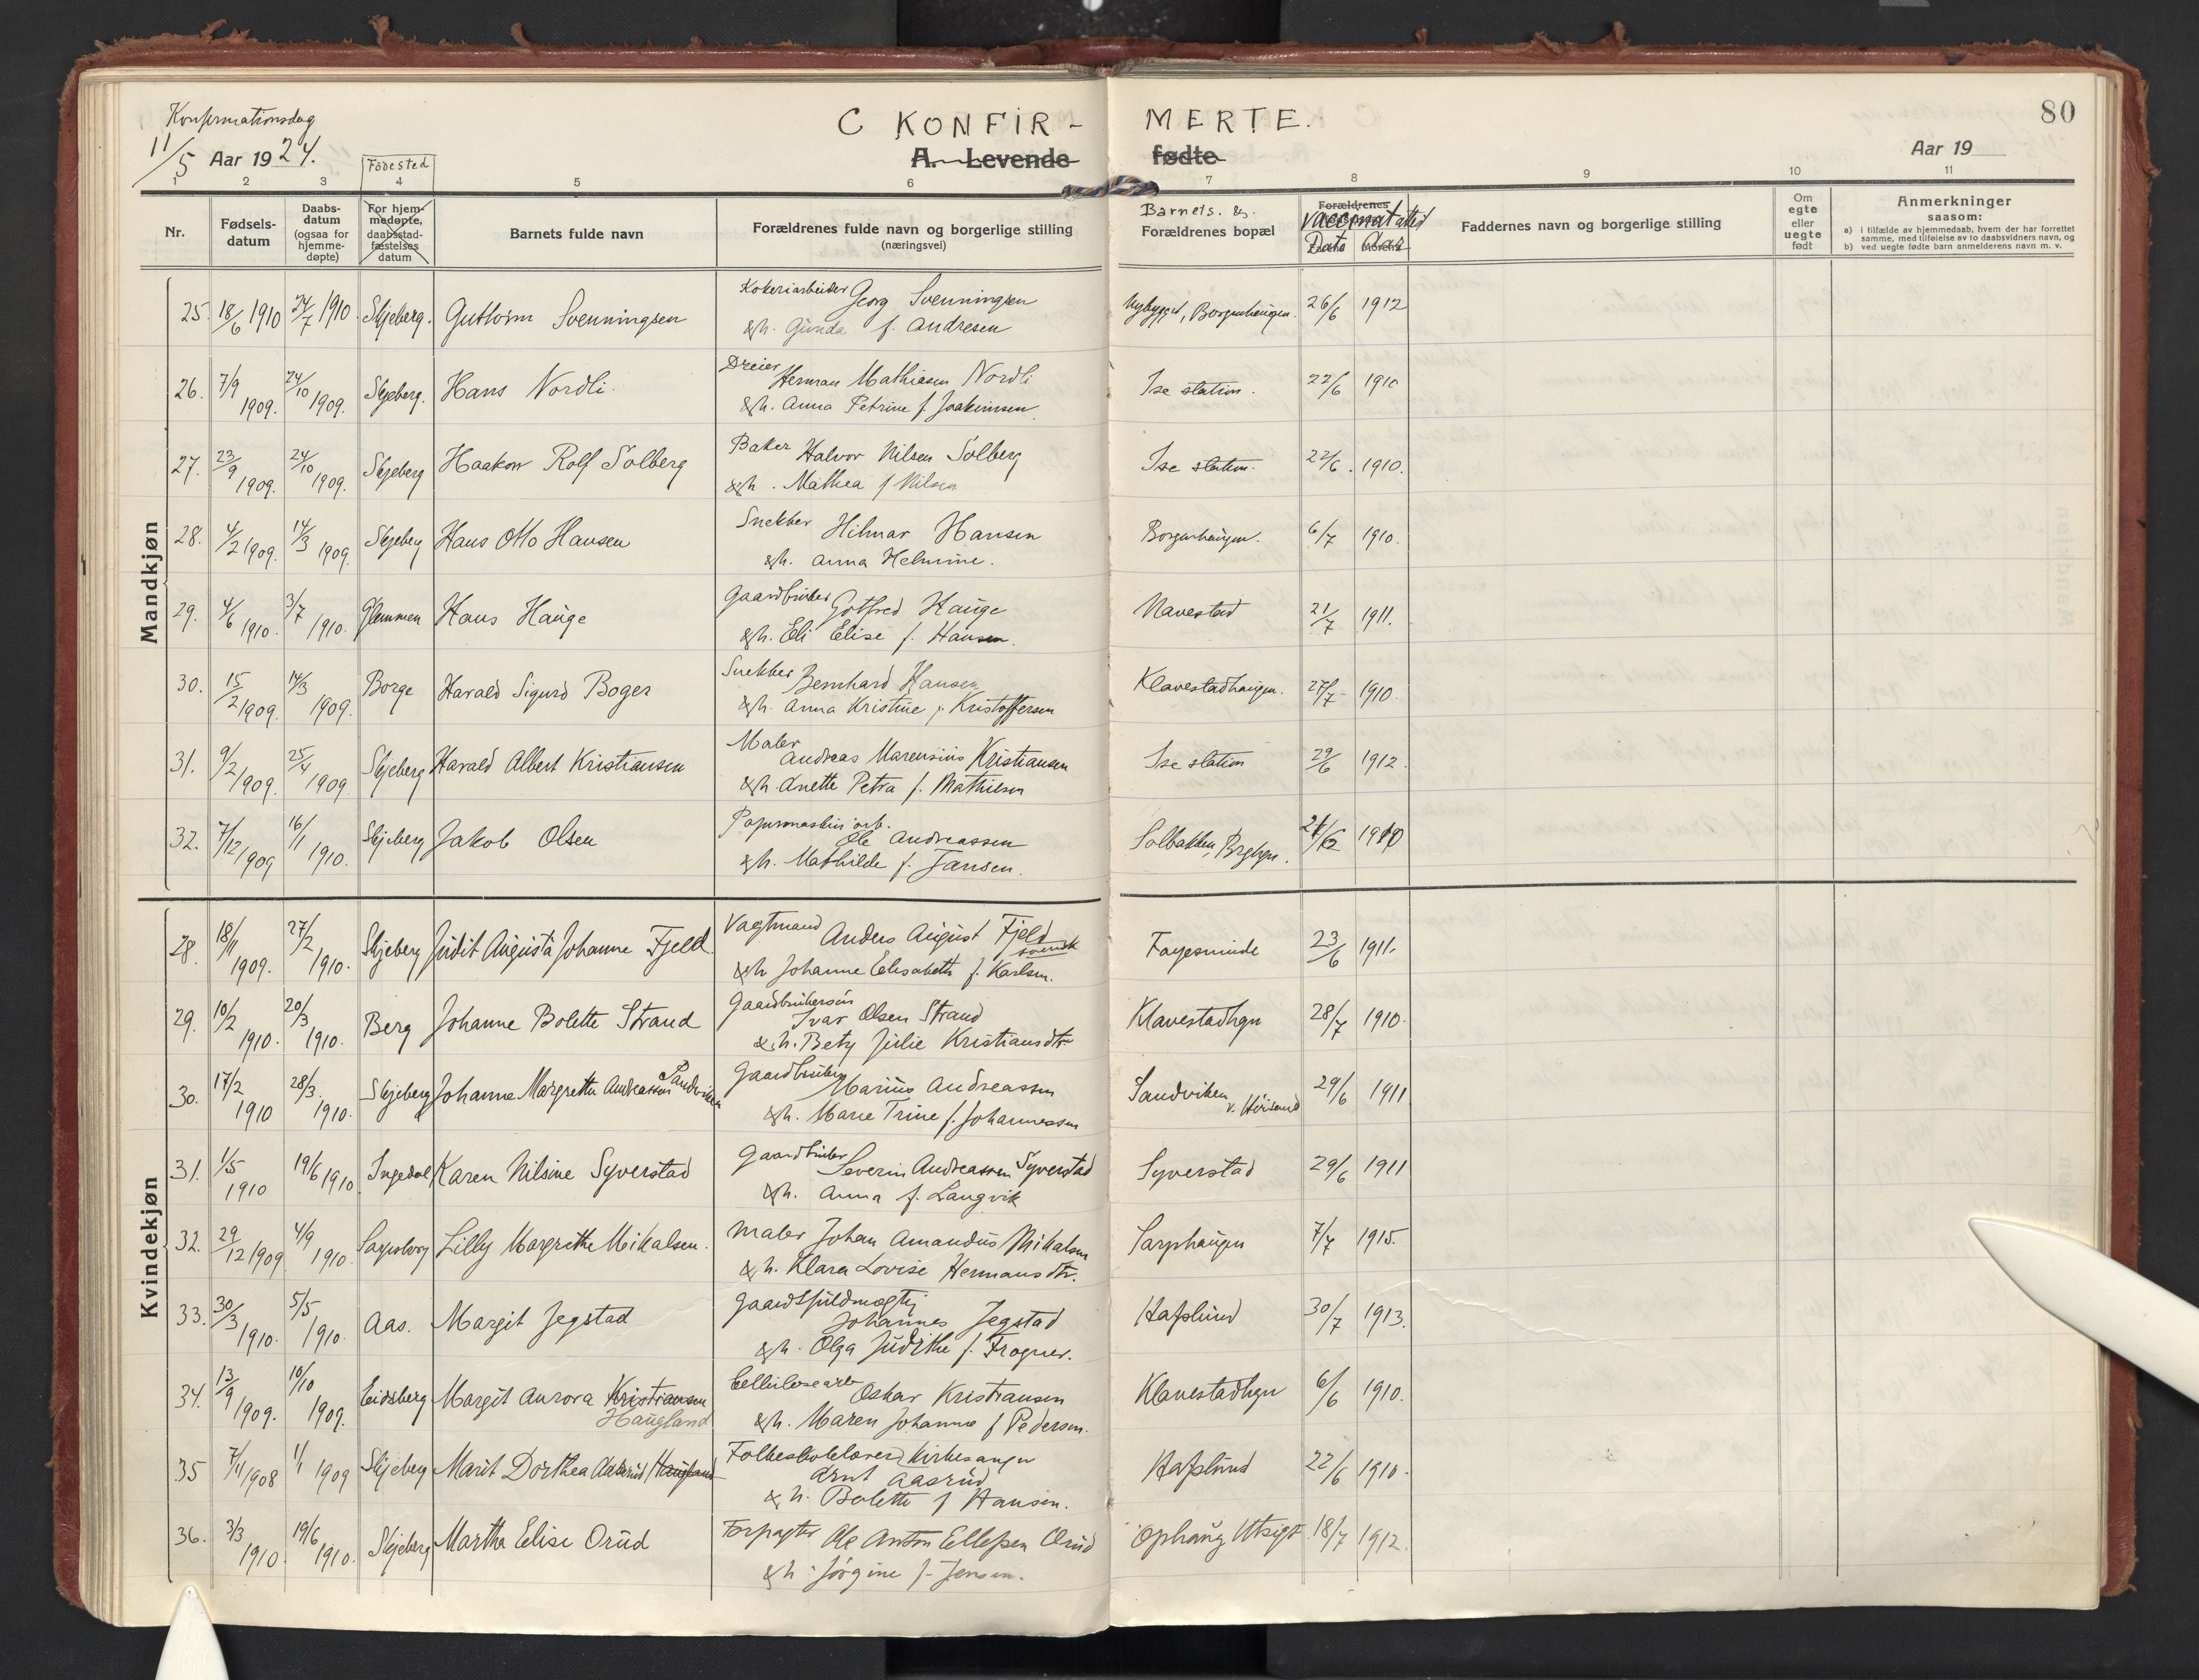 Konfirmationsdag
11/5 Aar 1924.
C KONFIR-MERTE.
A. Levende fødte
80
Aar 19
Fødested
1 2 3 4 5 6 7 8 9 10 11
Nr.
Fødsels-datum
Daabs-datum (ogsaa for hjemme-døpte)
For hjem-medøpte, daabsstad-fæstelses datum
Barnets fulde navn
Forældrenes fulde navn og borgerlige stilling (næringsvei)
Barnets. &
Forældrenes bopæl
Forældrenes
Vaccinatattest
Dato Aar
Faddernes navn og borgerlige stilling
Om egte eller uegte født
Anmerkninger
saasom:
a) i tilfælde av hjemmedaab, hvem der har forrettet samme, med tilføielse av to daabsvidners navn, og
b) ved uegte fødte barn anmelderens navn m. v.
Mandkjøn
25. 18/6 1910 24/7 1910 Skjeberg. Guthorm Svenningsen Kokeriarbeider Georg Svenningsen Nybygget, Borgenhaugen. 26/6 1912
&h. Gunda f. Andresen
26. 7/9 1909. 24/10 1909. Skjeberg. Hans Nordli. Dreier Herman Mathiesen Nordli Ise station. 22/6 1910
&h. Anna Petrine f. Joakimsen.
27. 23/9 1909. 24/10 1909. Skjeberg Haakon Rolf Solberg Baker Halvor Nilsen Solberg Ise station. 22/6. 1910.
&h. Mathea f Nilsen
28. 4/2 1909. 14/3 1909. Skjeberg Hans Otto Hansen Snekker Hilmar Hansen Borgenhaugen. 6/7 1910.
&h. Anna Helmine.
29. 4/6 1910. 3/7 1910. Glemmen Hans Hauge Gaardbruker Gotfred Hauge Navestad 21/7 1911.
&h. Eli Elise f. Hansen.
30. 15/2 1909. 14/3 1909. Borge Harald Sigurd Boger Snekker Bernhard Hansen Klavestadhaugen. 27/7 1910.
&h. Anna Kristine f. Kristoffersen
31. 9/2 1909. 25/4 1909. Skjeberg Harald Albert Kristiansen Maler Andreas Marensius Kristiansen Ise station 29/6 1912.
&h. Anette Petra f. Mathiesen
32. 7/12 1909 16/1 1910. Skjeberg Jakob Olsen Papirmaskin arb. Ole Andreassen Solbakken, Brghgn. 1910
&h. Mathilde f. Jansen.
Kvindekjøn
28. 18/11 1909. 27/2 1910. Skjeberg Judit Augusta Johanne Fjeld. Vagtmand Anders August Fjeld svensk Fagesminde 23/6 1911.
&h Johanne Elisabeth f. Karlsen.
29. 10/2 1910. 20/3 1910. Berg Johanne Bolette Strand Gaardbrukersøn Ivar Olsen Strand Klavestadhgn 28/7 1910.
&h. Bety Julie Kristiansdtr
30. 17/2 1910 28/3. 1910. Skjeberg Johanne Margrethe Andreassen Sandviken Gaardbruker Marius Andreassen Sandviken v. Høisand 29/6 1911
&h. Marie Trine f. Johannessen
31. 1/5 1910 19/6 1910 Ingedal Karen Nilsine Syverstad Gaardbruker Severin Andreassen Syverstad Syverstad 29/6 1911
&h. Anna f. Langvik
32. 29/12 1909 4/9 1910. Sarpsborg Lilly Margrethe Mikalsen. Maler Johan Amandus Mikalsen Sarphaugen 7/7 1915.
&h. Klara Lovise Hermansdtr.
33. 30/3 1910. 5/5 1910. Aas. Margit Jegstad Gaardsfuldmægtig Johannes Jegstad Hafslund 30/7 1913.
&h. Olga Judithe f. Frogner.
34. 13/9 1909. 10/10 1909. Eidsberg Margit Aurora Kristiansen Haugland Cellulosearb Oskar Kristiansen Klavestadhgn 6/6 1910.
&h. Maren Johanne f Pedersen.
35 7/11 1908 1/1 1909 Skjeberg Marit Dorthea Aasrud Haugland Folkeskolelærer, Kirkesanger Arnt Aasrud Hafslund 22/6 1910.
& h. Bolette f Hansen.
36. 3/3 1910. 19/6 1910. Skjeberg Martha Elise Orud Forpagter Ole Anton Ellefsen Orud Ophaug Utsigt 18/7 1912.
&h. Jørgine f. Jensen.